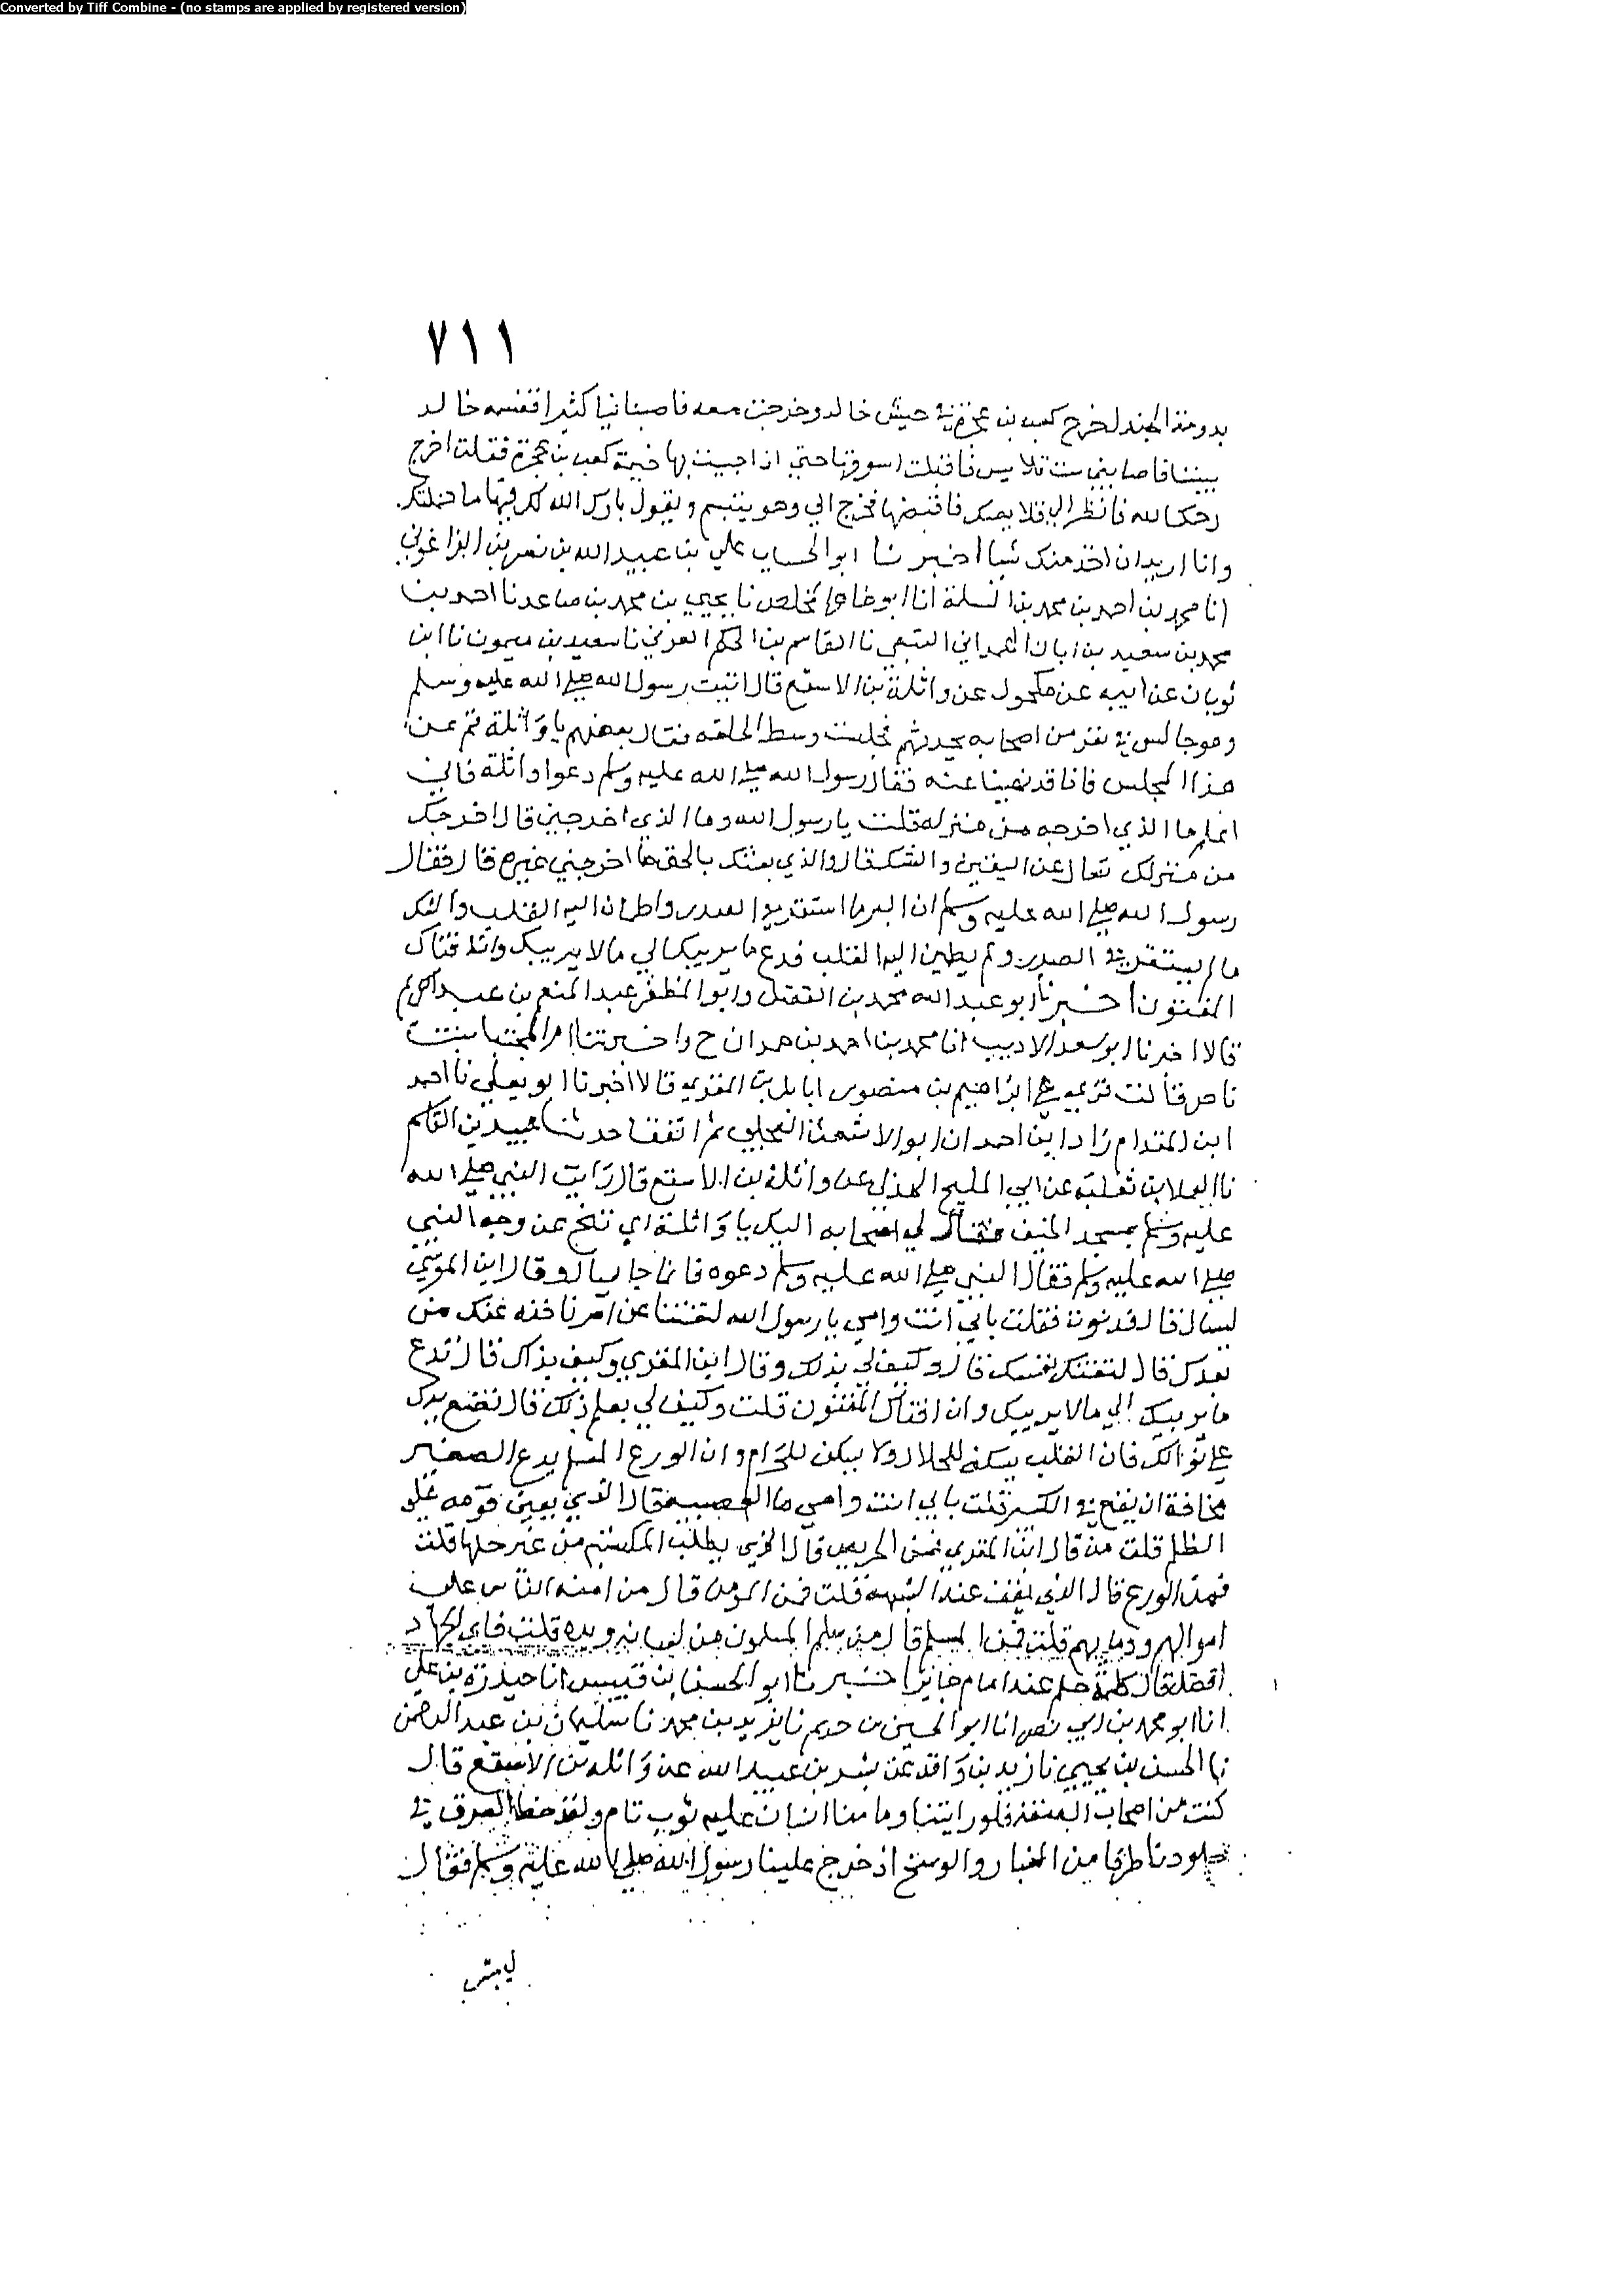 Converted by Tiff Combine - (no stamps are applied by registered version)
٧١١
بدومة الجندل خرج كعب بن عجرة في جيش خالد وخرجت معه فاصبنا فيا كثيرا فقسمه خالد
بيننا فاصابني ست قلايص فاقبلت اسوقها حتي اذا جيت بها خيمة كعب بن عجرة فقلت اخرج
رحمك الله فانظر الي قلايصك فاقبضها فخرج الي وهو يتبسم ويقول بارك الله لك فيها ما حملتك
وانا اريد ان اخذ منك شيا اخبرنا ابو الحسن علي بن عبيد الله بن نصر بن الزاغوني
انا محمد بن احمد بن محمد بن المسلمة انا ابو طاهر المخلص نا يحيي بن محمد بن صاعد نا احمد بن
محمد بن سعيد بن ابان الهمداني التبعي نا القاسم بن الحكم العرني نا سعيد بن ميمون نا ابن
ثوبان عن ابيه عن مكحول عن واثلة بن الاسقع قال اتيت رسول الله صلي الله عليه وسلم
وهو جالس في نفر من اصحابه يحدثهم فجلست وسط الحلقه فقال بعضهم يا واثلة قم عن
هذا المجلس فانا قد نهينا عنه فقال رسول الله صلي الله عليه وسلم دعوا واثلة فاني
اعلم ما الذي اخرجه من منزله قلت يا رسول الله وما الذي اخرجني قال اخرجك
من منزلك تسال عن اليقين والشك قال والذي بعثك بالحق ما اخرجني غيره قال فقال
رسول الله صلي الله عليه وسلم ان البر ما استقر في الصدر واطمان اليه القلب والشك
ما لم يستقر في الصدر ولم يطمين اليه القلب فدع ما يريبك الي ما لا يريبك وان افتاك
المفتون اخبرنا ابو عبد الله محمد بن الفضل وابو المظفر عبد المنعم بن عبد الكريم
قالا اخبرنا ابو سعد الاديب انا محمد بن احمد بن حمدان ح واخبرتنا ام المجتبا بنت
ناصر قالت قري علي ابراهيم بن منصور انا ابو بكر بن المقري قالا اخبرنا ابو يعلي نا احمد
ابن المقدام زاد ابن احمدان ابو الاشعث العجلي ثم اتفقا حدثنا عبيد بن القاسم
نا العلا بن ثعلبة عن ابي المليح الهذلي عن واثلة بن الاسقع قال رايت النبي صلي الله
عليه وسلم بمسجد الخيف فقال لي اصحابه اليك يا واثلة اي تنح عن وجه النبي
صلي الله عليه وسلم فقال النبي صلي الله عليه وسلم دعوه فانما جا يسال وقال ابن المقري
ليسال قال فدنوت فقلت بابي انت وامي يا رسول الله لتفتنا عن امر ناخذه عنك من
بعدك قال لتفتك نفسك قال وكيف لي بذلك وقال ابن المقري وكيف بذاك قال تدع
ما يريبك الي ما لا يريبك وان افتاك المفتون قلت وكيف لي بعلم ذلك قال تضع يدك
علي فوادك فان القلب يسكن للحلال ولا يسكن للحرام وان الورع المسلم يدع الصغير
مخافة ان يقع في الكبير قلت بابي انت وامي ما العصبية قال الذي يعين قومه علي
الظلم قلت من قال ابن المقري فمن الحريص قال الذي يطلب المكسبة من غير حلها قلت
فمن الورع قال الذي يقف عند الشبهة قلت فمن المومن قال من امنه الناس علي
اموالهم ودمايهم قلت فمن المسلم قال من سلم المسلمون من لسانه ويده قلت فاي الجهاد
افضل قال كلمة حكم عند امام جاير اخبرنا ابو الحسن بن قبيس انا حيدرة بن علي
انا ابو محمد بن ابي نصر انا ابو الحسين بن حذيم نا يزيد بن محمد نا سليمان بن عبد الرحمن
نا الحسن بن يحيي نا زيد بن واقد عن بشر بن عبيد الله عن واثلة بن الاسقع قال
كنت من اصحاب الصفة فلو رايتنا وما منا انسان عليه ثوب تام ولقد خط العرق في
جلودنا طرقا من الغبار والوسخ اذ خرج علينا رسول الله صلي الله عليه وسلم فقال
ليبشر